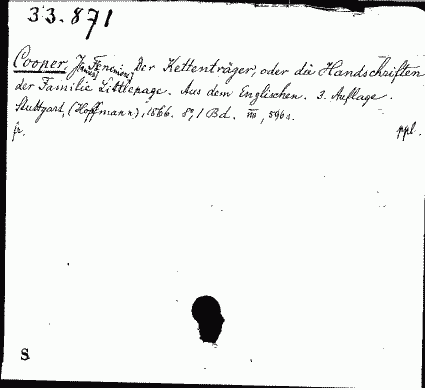 33.871
Cooper, J. (James) Fenimore, Der Kettenträger, oder die Handschriften
der Familie Littlepage. Aus dem Englischen. 3. Auflage.
Stuttgart, (Hoffmann), 1866. 8°, 1 Bd. VIII, 596 s.
fr. ppl.
S